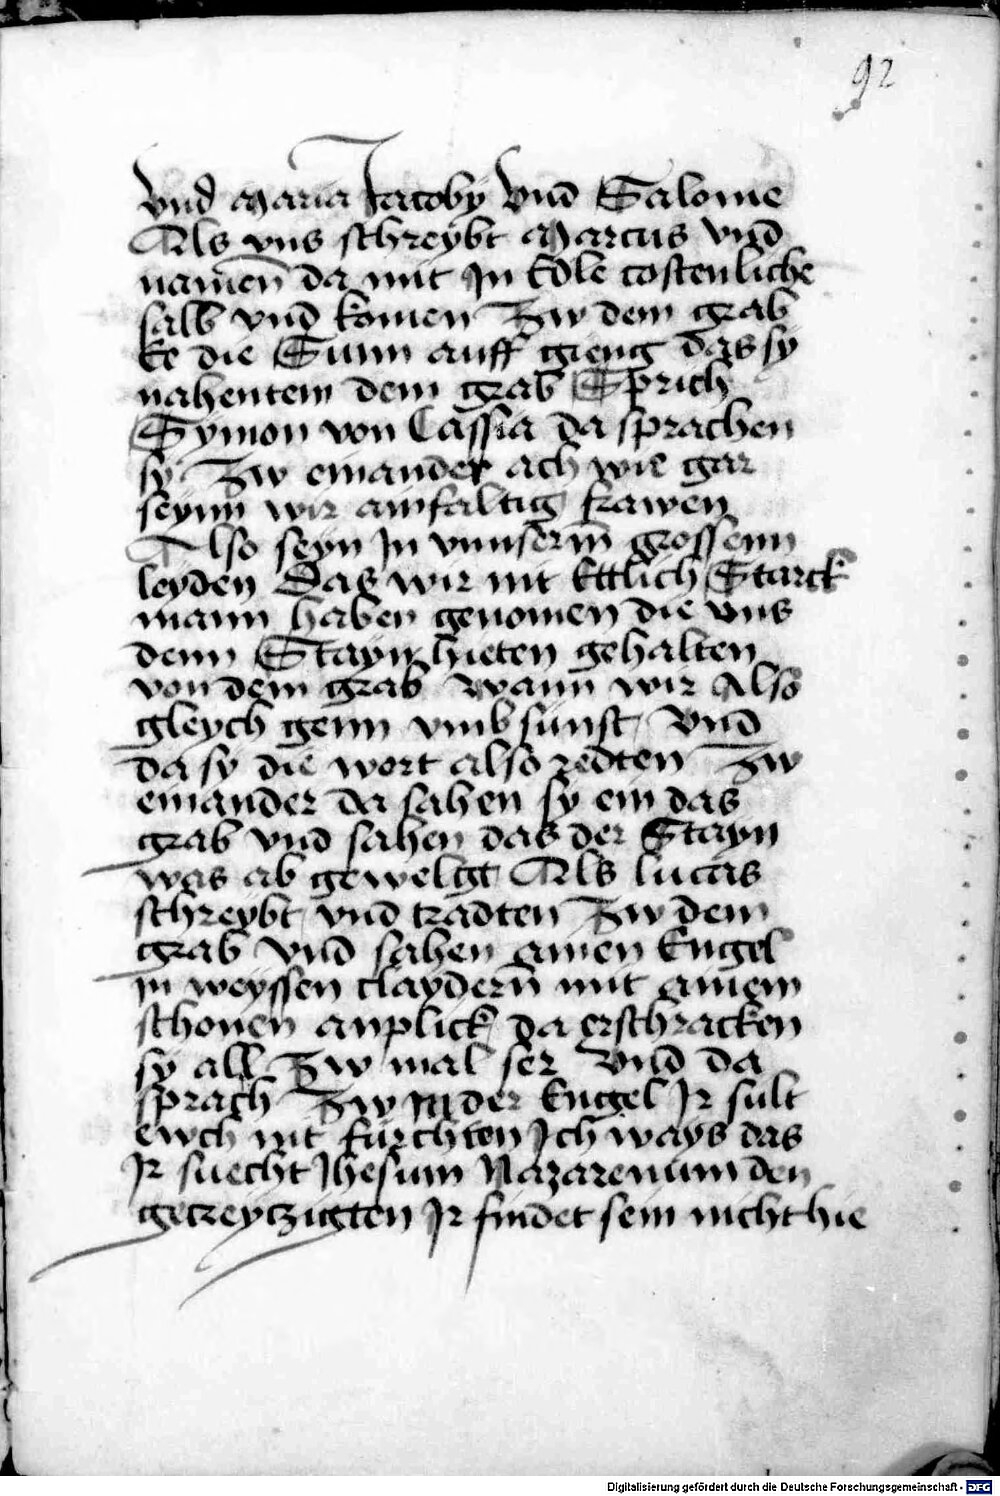 92
Vnd Maria Jacoby Vnd Salome
Als vns schreybt Marcus vnd
namen da mit In Edle costenliche
salb vnd komen Zw dem grab
Ee die Sunn auff gieng das sy
nahentem dem grab Sprich
Symon von Cassia da sprachen
sy Zw einander ach wie gar
seynn wir ainfaltig frawen
Also seyn In vnnserm grossenn
leyden Das wir nit Ettlich Starck
mann haben genomen die vns
denn Stayn hieten gehalten
von dem grab wann wir Also
gleych genn vmb sunst Vnd
da sy die wort also redten Zw
einander da sahen sy ein das
grab vnd sahen das der Stayn
was ab gewelgt Als lucas
schreybt vnd tradten Zw dem
grab vnd sahen ainen Engel
in weyssen claydern mit ainem
schonen anplick da erschracken
sy all Zw mal ser Vnd da
sprach Zw in der Engel Ir sult
ewch nit furchten Ich ways das
Ir suecht Jhesum Nazarenum den
gecreytzigten Ir findet sein nicht hie
Digitalisierung gefördert durch die Deutsche Forschungsgemeinschaft - DFG